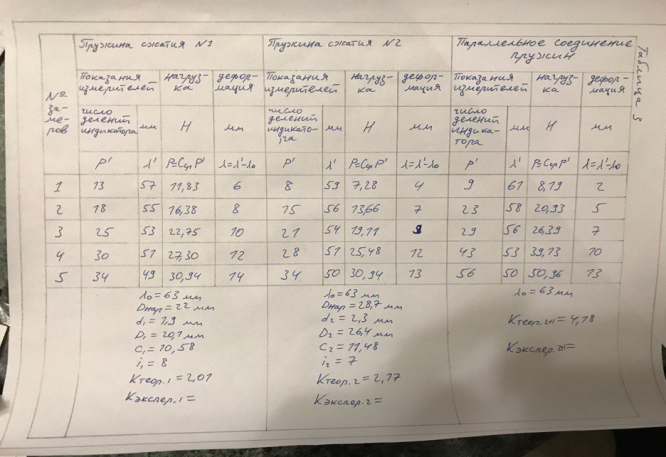 Таблица 3
№ за-ме-ров
Пружина сжатия №1
Пружина сжатия №2
Параллельное соединение пружин
Показания измерителей
нагруз-ка
дефор-мация
Показания измерителей
нагруз-ка
дефор-мация
Показания измерителей
нагруз-ка
дефор-мация
число делений индикатора
мм
Н
мм
число делений индикато-ра
мм
Н
мм
число делений индика-тора
мм
Н
мм
P' λ' P=CцP' λ=λ'-λ0 P' λ' P=CцP' λ=λ'-λ0 P' λ' P=CцP' λ=λ'-λ0
1 13 57 11,83 6 8 59 7,28 4 9 61 8,19 2
2 18 55 16,38 8 15 56 13,66 7 23 58 20,93 5
3 25 53 22,75 10 21 54 19,11 9 29 56 26,39 7
4 30 51 27,30 12 28 51 25,48 12 43 53 39,13 10
5 34 49 30,94 14 34 50 30,94 13 56 50 50,96 13
λ0=63 мм
Dнар=22 мм
d1=1,9 мм
D1=20,1 мм
C1=10,58
i1=8
Kтеор.1=2,01
Kэкспер.1=
λ0=63 мм
Dнар=28,7 мм
d2=2,3 мм
D2=26,4 мм
C2=11,48
i2=7
Kтеор.2=2,17
Kэкспер.2=
λ0=63 мм
Kтеор.=4,18
Kэкспер.=